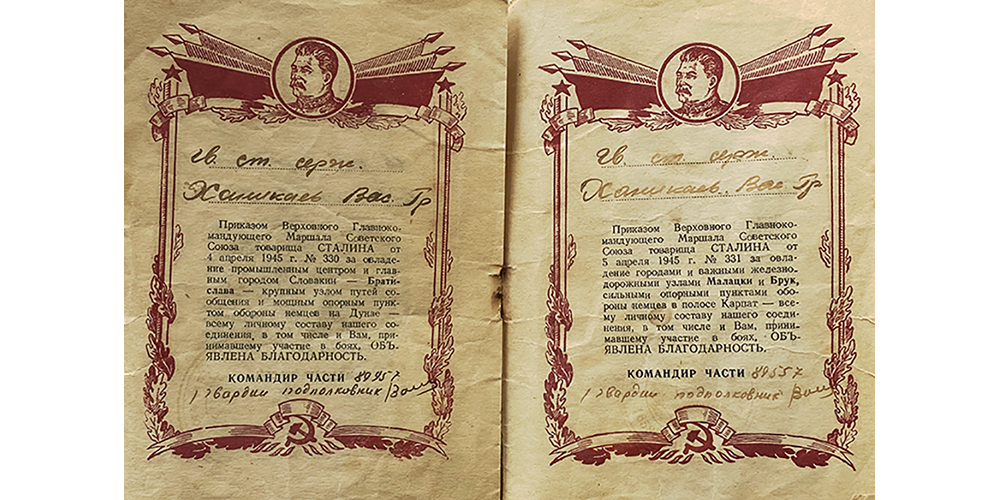 гв. ст. серж.
Хашкаев Вас. Гр
Приказом Верховного Главноко-
мандующего Маршала Советского
Союза товарища СТАЛИНА от
4 апреля 1945 г. № 330 за овладе-
ние промышленным центром и глав-
ным городом Словакии — Брати-
слава — крупным узлом путей со-
общения и мощным опорным пунк-
том обороны немцев на Дунае —
всему личному составу нашего со-
единения, в том числе и Вам, при-
нимавшему участие в боях, ОБЪ-
ЯВЛЕНА БЛАГОДАРНОСТЬ.
КОМАНДИР ЧАСТИ
гвардии подполковник
гв. ст. серж.
Хашкаев. Вас. Гр
Приказом Верховного Главноко-
мандующего Маршала Советского
Союза товарища СТАЛИНА от
5 апреля 1945 г. № 331 за овла-
дение городами и важными железно-
дорожными узлами Малацки и Брук,
сильными опорными пунктами обо-
роны немцев в полосе Карпат — все-
му личному составу нашего соеди-
нения, в том числе и Вам, прини-
мавшему участие в боях, ОБЪ-
ЯВЛЕНА БЛАГОДАРНОСТЬ.
КОМАНДИР ЧАСТИ
гвардии подполковник